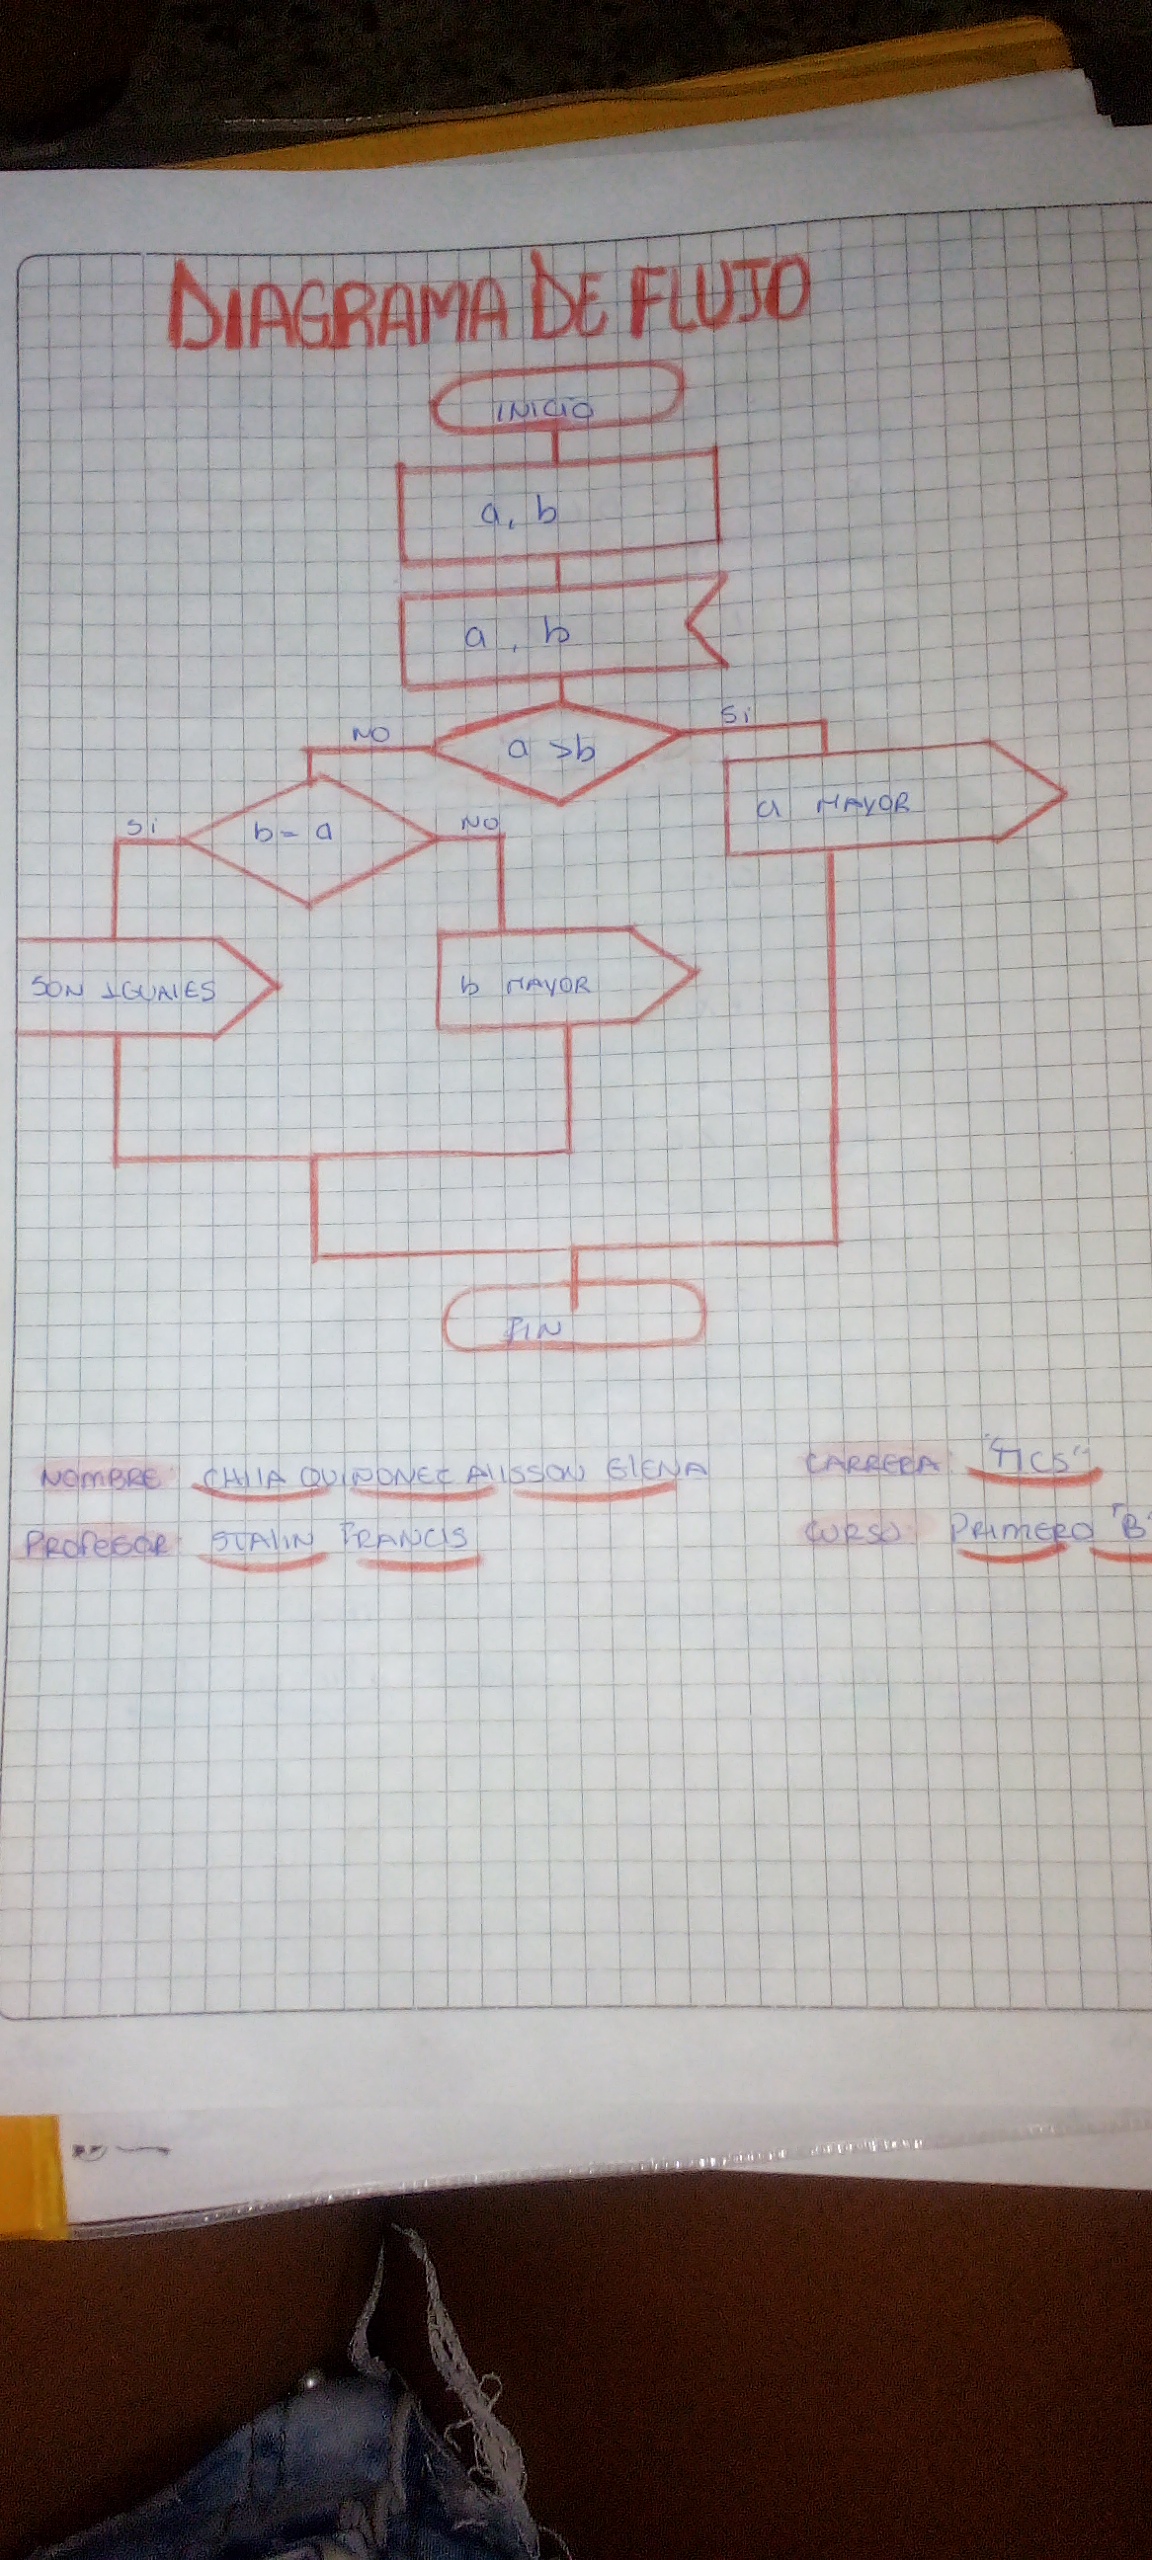 DIAGRAMA DE FLUJO
INICIO
a, b
a, b
a >b
NO
Si
b = a
Si
NO
a MAYOR
SON IGUALES
b MAYOR
FIN
NOMBRE: CHILA QUIÑONEZ ALISSON ELENA
CARRERA: "TICS"
PROFESOR: STALIN FRANCIS
CURSO: PRIMERO "B"